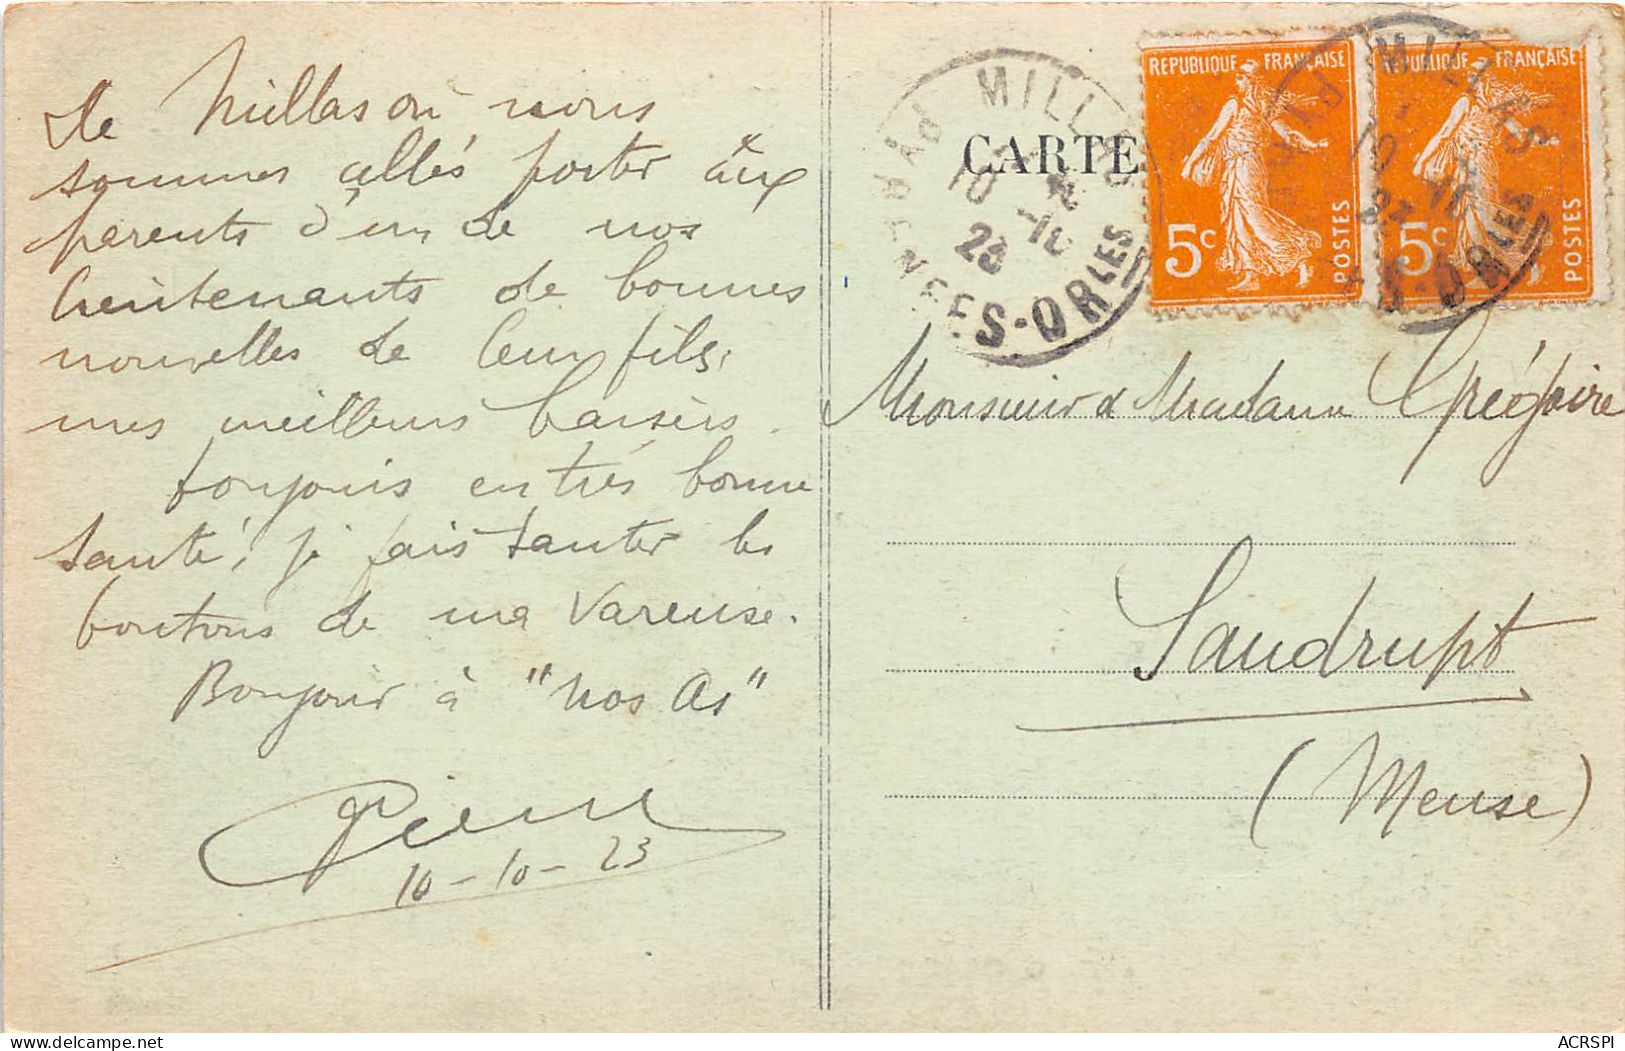 de Millas où nous
sommes allés porter aux
parents d'un de nos
lieutenants de bonnes
nouvelles de leur fils,
mes meilleurs baisers.
toujours en très bonne
santé, je fais sauter les
boutons de ma vareuse.
Bonjour à "nos As"
Pierre
10-10-23
CARTE
MILLAS
10 -10
23
PYRÉNÉES-ORLES
REPUBLIQUE FRANÇAISE
5c POSTES
REPUBLIQUE FRANÇAISE
5c POSTES
MILLAS
10 -10
23
ES-ORLES
Monsieur & Madame Grégoire
Saudrupt
(Meuse)
ACRSPI